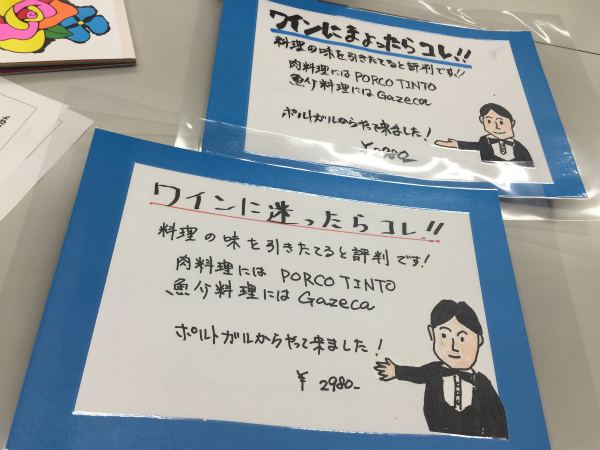 ワインにまよったらコレ!!
料理の味を引きたてると評判です!!
肉料理には PORCO TINTO
魚介料理には Gazeca
ポルトガルからやって来ました!
¥2980
ワインに迷ったらコレ!!
料理の味を引きたてると評判です!
肉料理には PORCO TINTO
魚介料理には Gazeca
ポルトガルからやって来ました!
¥ 2980-